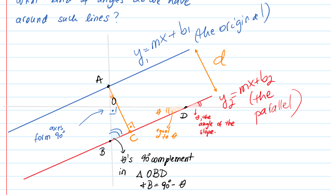 What kind of angles do we have
around such lines?
y₁ = mx + b₁ (the original)
d
y₂ = mx + b₂
(the parallel)
A
O
axis
form 90°
D
θ
θ, the angle of the
slope.
equal
to θ
C
B
θ's 90° complement
in △ OBD
∢B = 90° - θ